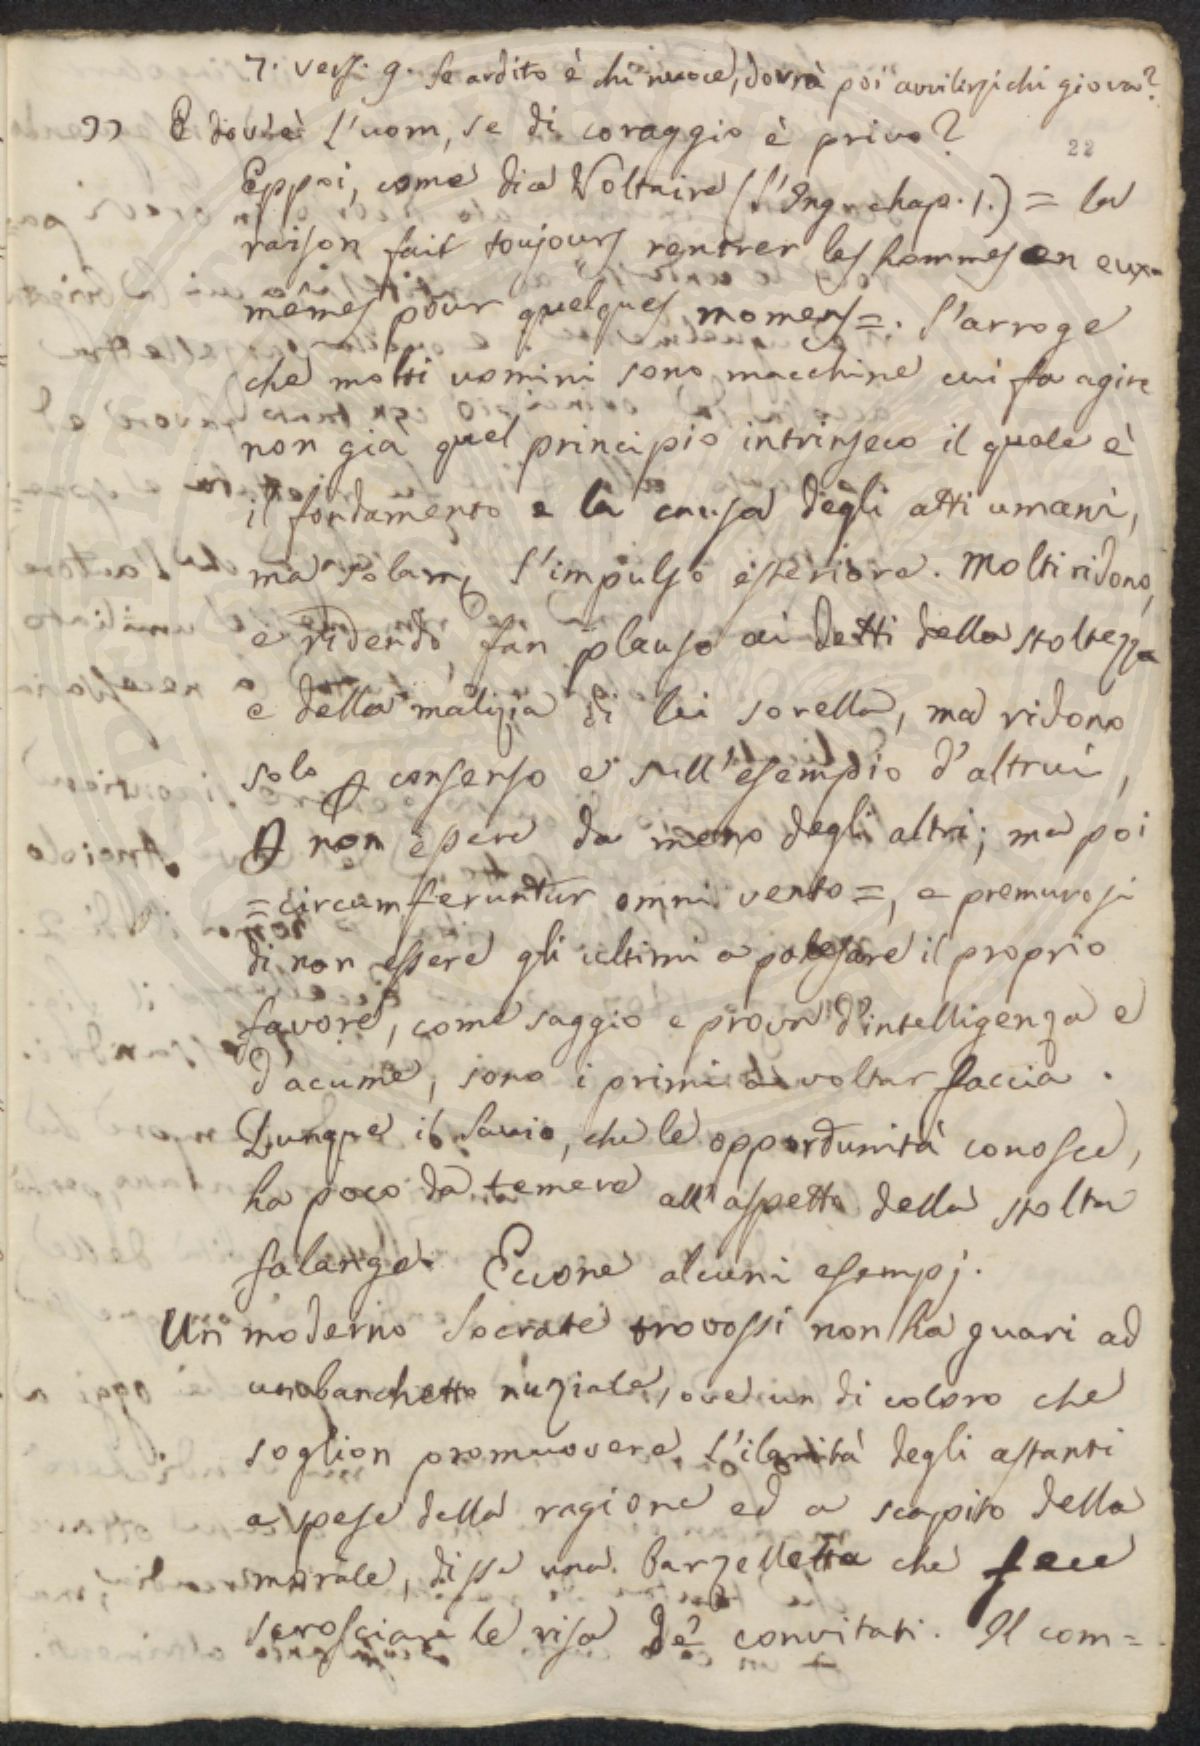 7. vers. 9. Se ardito è chi nuoce, dovrà poi avvilirsi chi giova?
" E dov'è l'uom, se di coraggio è privo?
22
Eppoi, come dice Voltaire (l'Ing. chap. 1.) = la
raison fait toujours rentrer les hommes en eux-
mêmes pour quelques momens =. S'arroge
che molti uomini sono macchine cui fa agire
non già quel principio intrinseco il quale è
il fondamento e la causa degli atti umani,
ma solam. l'impulso esteriore. Molti ridono,
e ridendo fan plauso ai detti della stoltezza
e della malizia di lei sorella, ma ridono
solo p consenso e sull'esempio d'altrui,
p non essere da meno degli altri; ma poi
= circumferuntur omni vento =, e premurosi
di non essere gli ultimi a palesare il proprio
favore, come saggio e prova d'intelligenza e
d'acume, sono i primi a voltar faccia.
Dunque il Savio, che le opportunità conosce,
ha poco da temere all'aspetto della stolta
falange. Eccone alcuni esempj.
Un moderno Socrate trovossi non ha guari ad
uno banchetto nuziale, ove un di coloro che
soglion promuovere l'ilarità degli astanti
a spese della ragione ed a scapito della
morale, disse una barzelletta che fece
scrosciare le risa de' convitati. Il com=